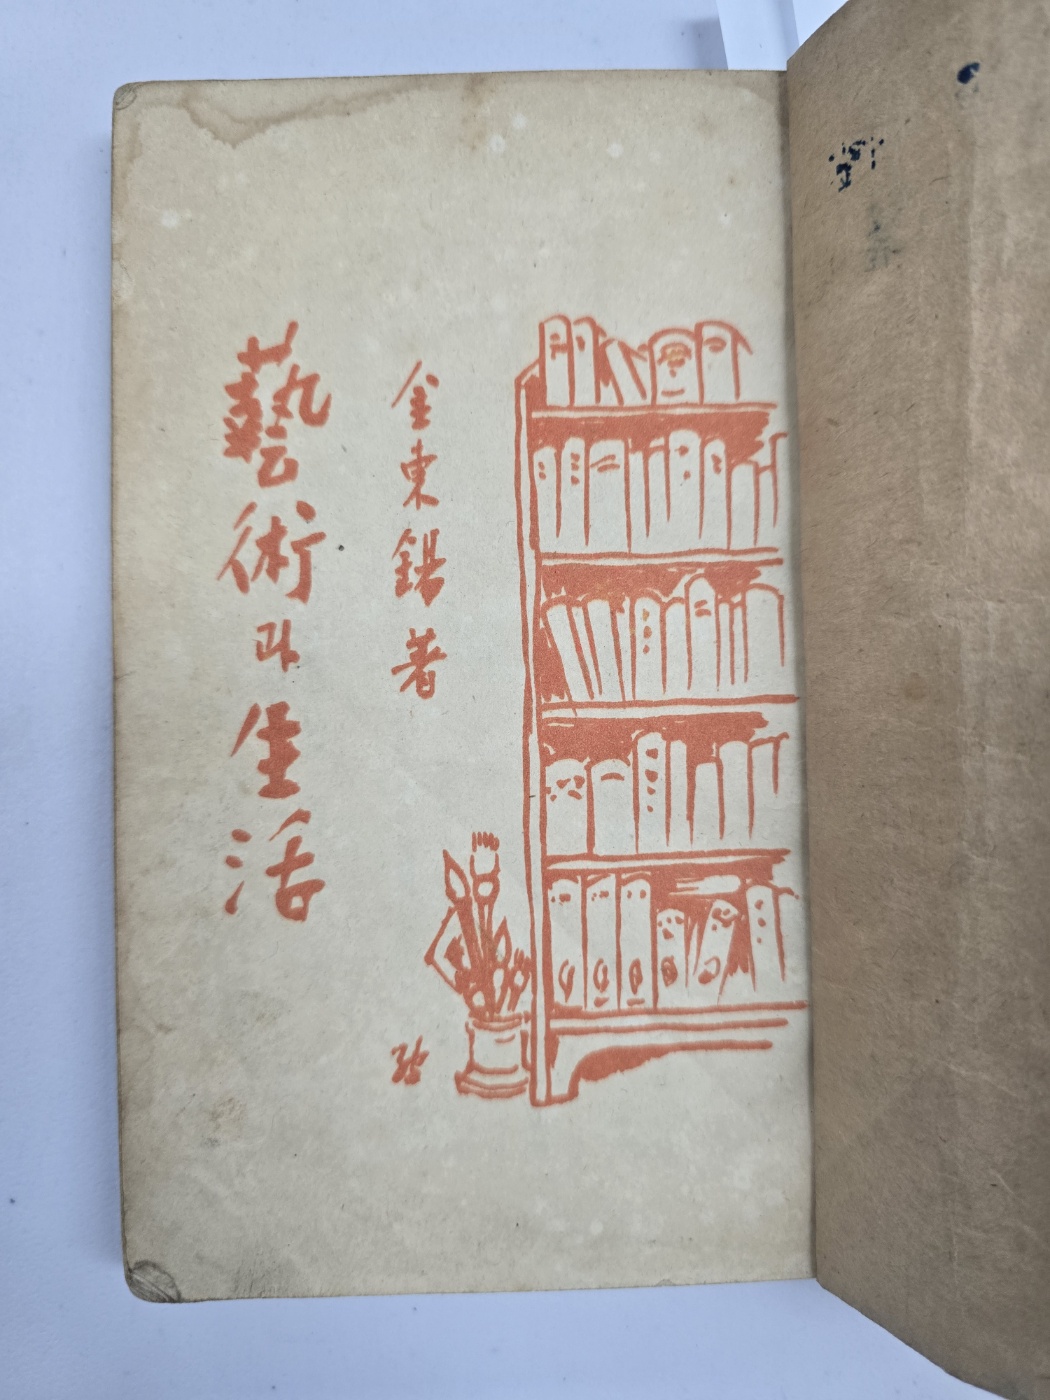 金東錫著
藝術과生活